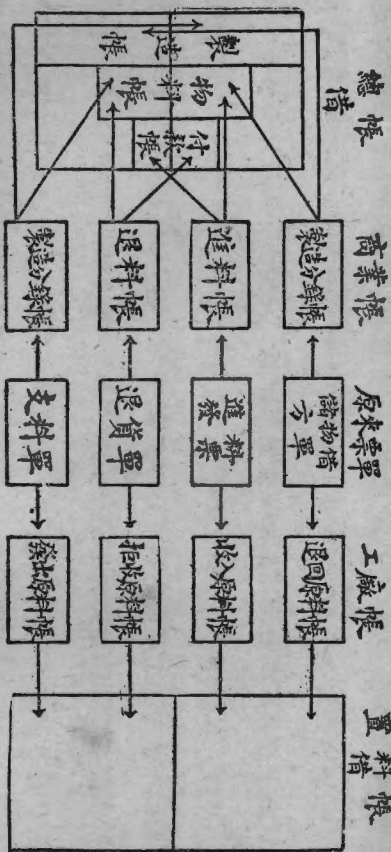 總帳
借
製造帳
物料帳
付款帳
商業帳
製造分錄帳
進料帳
退料帳
製造分錄帳
原來票單
儲物借
方單
進料
發票
退貨單
支料單
工廠帳
退回原料帳
收入原料帳
拒收原料帳
發出原料帳
置料帳
借